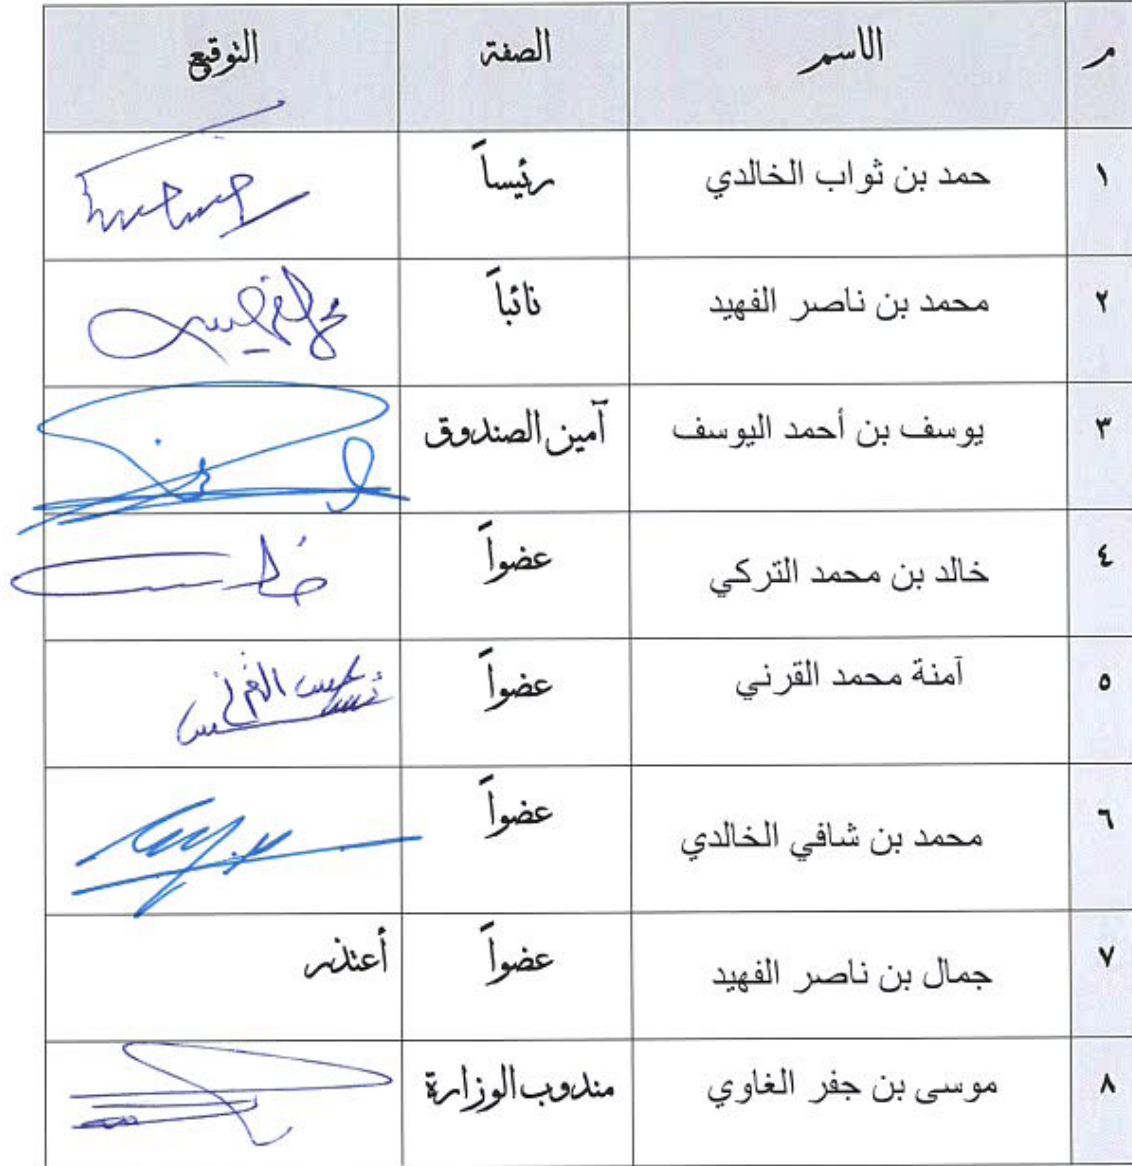 م الاسم الصفة التوقيع
١ حمد بن ثواب الخالدي رئيساً
٢ محمد بن ناصر الفهيد نائباً
٣ يوسف بن أحمد اليوسف آمين الصندوق
٤ خالد بن محمد التركي عضواً
٥ آمنة محمد القرني عضواً
٦ محمد بن شافي الخالدي عضواً
٧ جمال بن ناصر الفهيد عضواً أعتذر
٨ موسى بن جفر الغاوي مندوب الوزارة